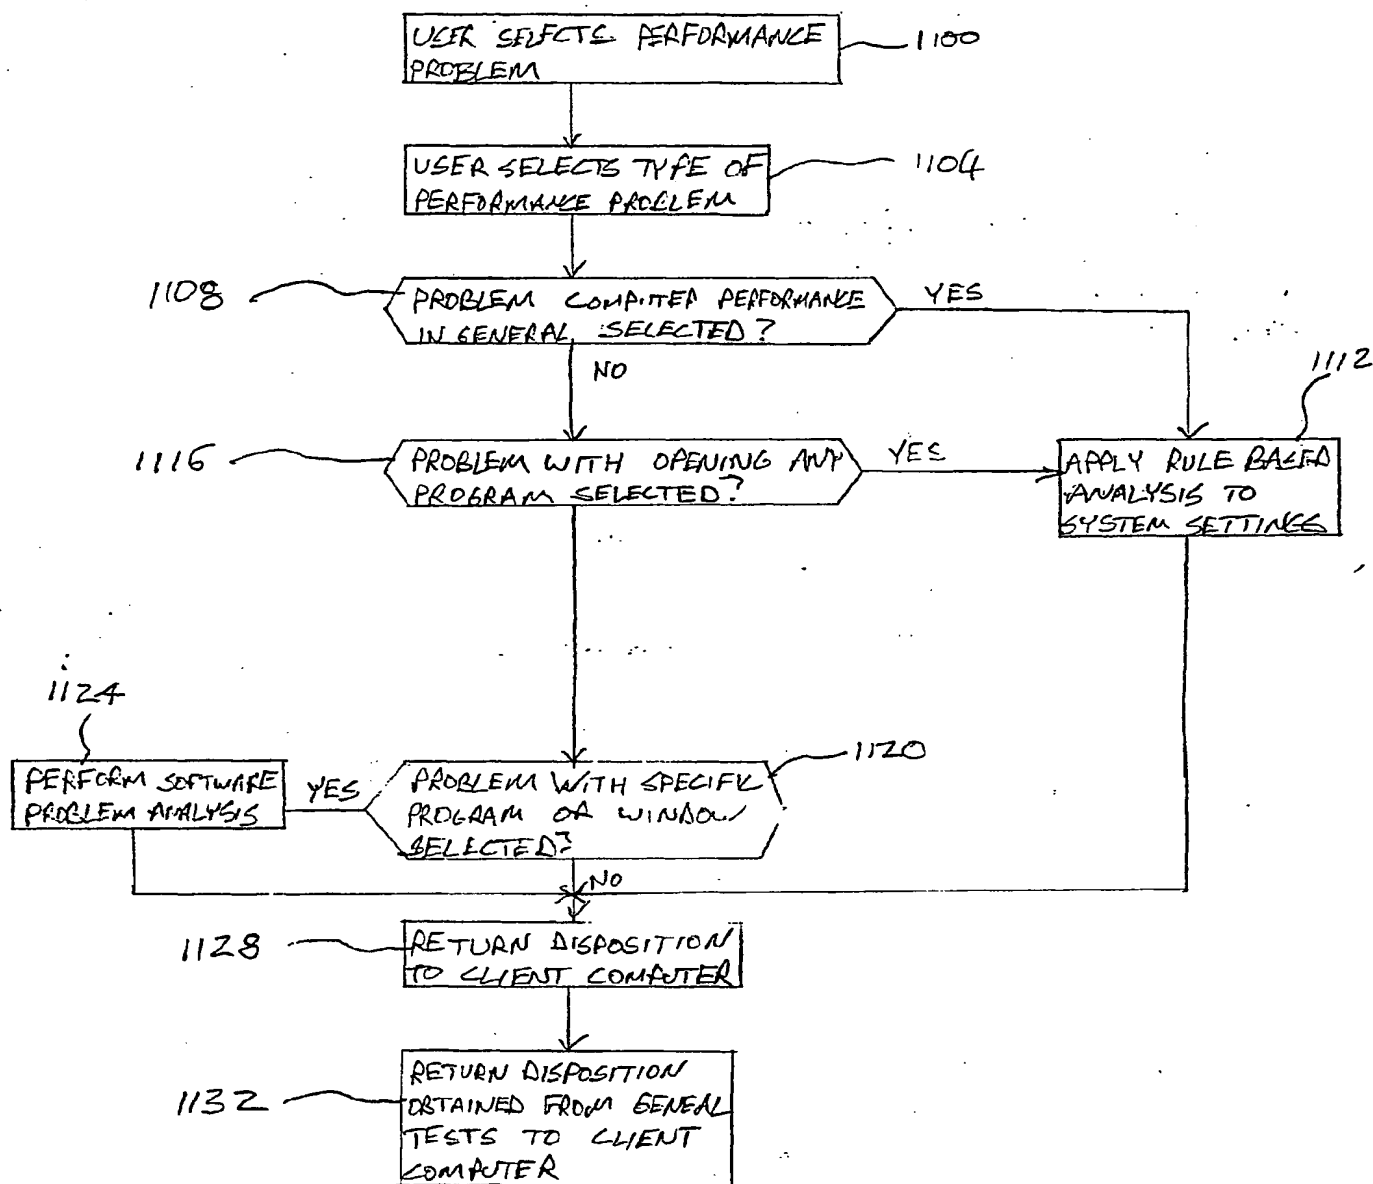 USER SELECTS PERFORMANCE
PROBLEM
1100
USER SELECTS TYPE OF
PERFORMANCE PROBLEM
1104
1108
PROBLEM COMPUTER PERFORMANCE
IN GENERAL SELECTED?
YES
NO
1112
1116
PROBLEM WITH OPENING ANY
PROGRAM SELECTED?
YES
APPLY RULE BASED
ANALYSIS TO
SYSTEM SETTINGS
1124
PERFORM SOFTWARE
PROBLEM ANALYSIS
YES
1120
PROBLEM WITH SPECIFIC
PROGRAM OR WINDOW
SELECTED?
NO
1128
RETURN DISPOSITION
TO CLIENT COMPUTER
1132
RETURN DISPOSITION
OBTAINED FROM GENEAL
TESTS TO CLIENT
COMPUTER